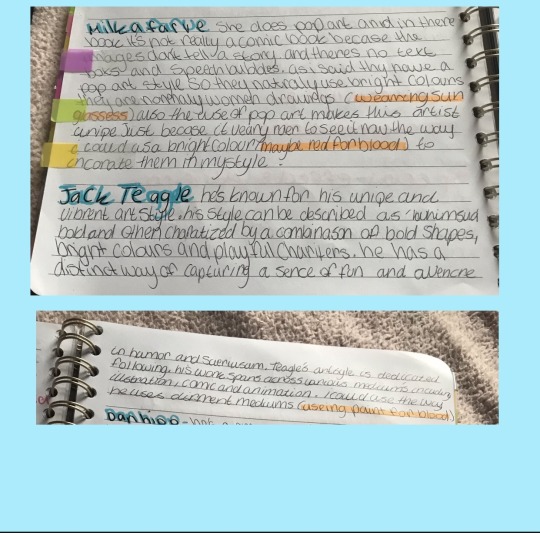 Milka favre she does pop art and in there
book it's not really a comic book becase the
images dont tell a story and theres no text
boxs and speech bubbles, as i said thy have a
pop art style so they natraly use bright colours
they are normaly women drawings (wearing sun
glassess) also the use of pop art makes this artist
unipe Just becase it veany rair to see it now the way
i could usa a bright colour (maybe red for blood) to
incorate them in my style.
Jack Teagle he's known for his uniqe and
vibrent art style, his style can be described as
bold and often charatized by a combanason of bold shapes,
bright colours and playful charicters. he has a
distinct way of capturing a sence of fun and
in humor and Teagle's artsyle is dedicated
following, his work spans across various mediums includin
illustration, comic and animation. I could use the way
he uses diffrent mediums (useing paint for blood)